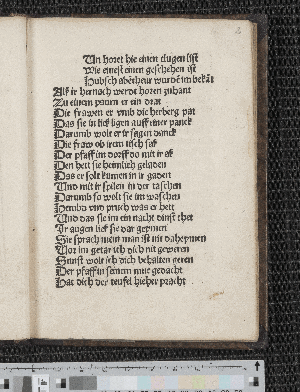 Un horet hie einen clugen list
Wie einest einen geschehen ist
Hubsch abenteur wurdet im bekāt
Als ir hernoch werdt horen zuhant
Zu einem paurn er ein drat
Die frawen er vmb die herberg pat
Das sie in ließ ligen auff einer panck
Darumb wolt er ir sagen danck
Die fraw ob irem tisch saß
Der pfaff im dorff do mit ir aß
Den hett sie heimlich geladen
Das er solt kumen in ir gaden
Und mit ir spilen in der taschen
Darumb so wolt sie im waschen
Hembd vnd pruch was er hett
Und das sie im ein nacht dinst thet
Ir augen ließ sie dar geymen
Sie sprach mein man ist nit daheymen
Vor im getar ich dich nit geweren
Sunst wolt ich dich behalten geren
Der pfaff in seinem mut gedacht
Hat dich der teufel hieher pracht